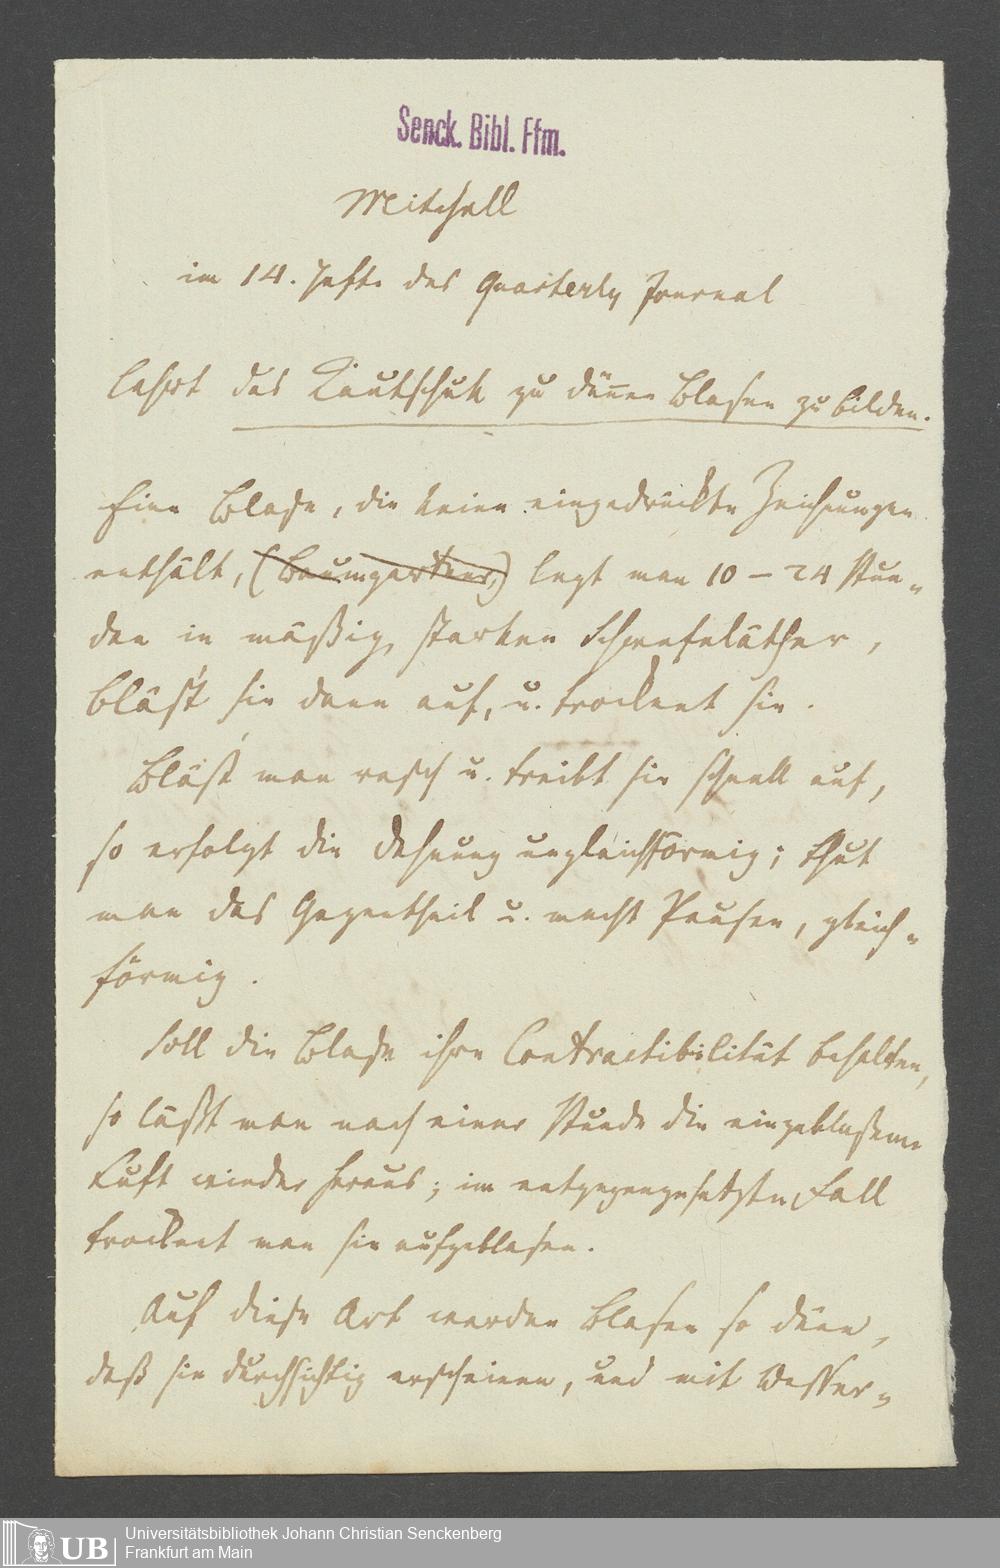 Senck. Bibl. Ffm.
Mitchell
im 14. Hefte des Quarterly Journal
lehrt das Kautschuk zu dünnen Blasen zu bilden.
Eine Blase, die keine eingedrückte Zeichnungen
enthält, (Baumgartner,) legt man 10 – 24 Stun„
den in mäßig starken Schwefeläther,
bläs't sie dann auf, u. trocknet sie.
Bläst man rasch u. treibt sie schnell auf,
so erfolgt die Dehnung ungleichförmig; thut
man das Gegentheil u. macht Pausen, gleich„
förmig.
Soll die Blase ihre Contractibilität behalten,
so läßt man nach einer Stunde die eingeblasene
Luft wieder heraus; im entgegengesetzten Fall
trocknet man sie aufgeblasen.
Auf diese Art werden Blasen so dünn,
daß sie durchsichtig erscheinen, und mit Wasser„
UB
Universitätsbibliothek Johann Christian Senckenberg
Frankfurt am Main